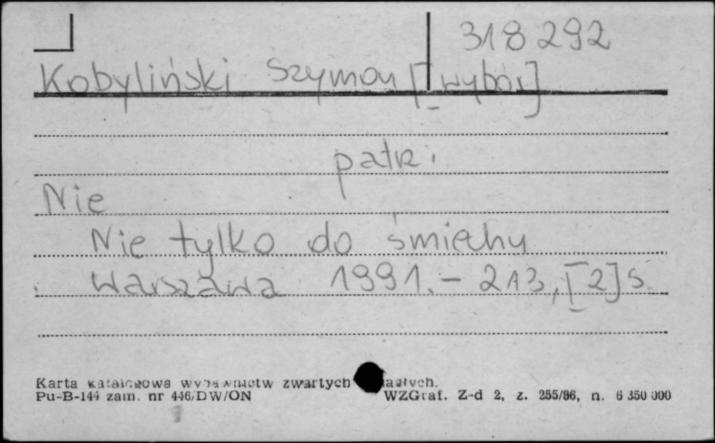 318292
Kobyliński Szymon [wybór]
patrz:
Nie
Nie tylko do śmiechu
Warszawa 1991. – 213, [2] s.
Karta katalogowa wydawnictw zwartych
Pu-B-144 zam. nr 446/DW/ON WZGraf. Z-d 2, z. 255/86, n. 6 350 000